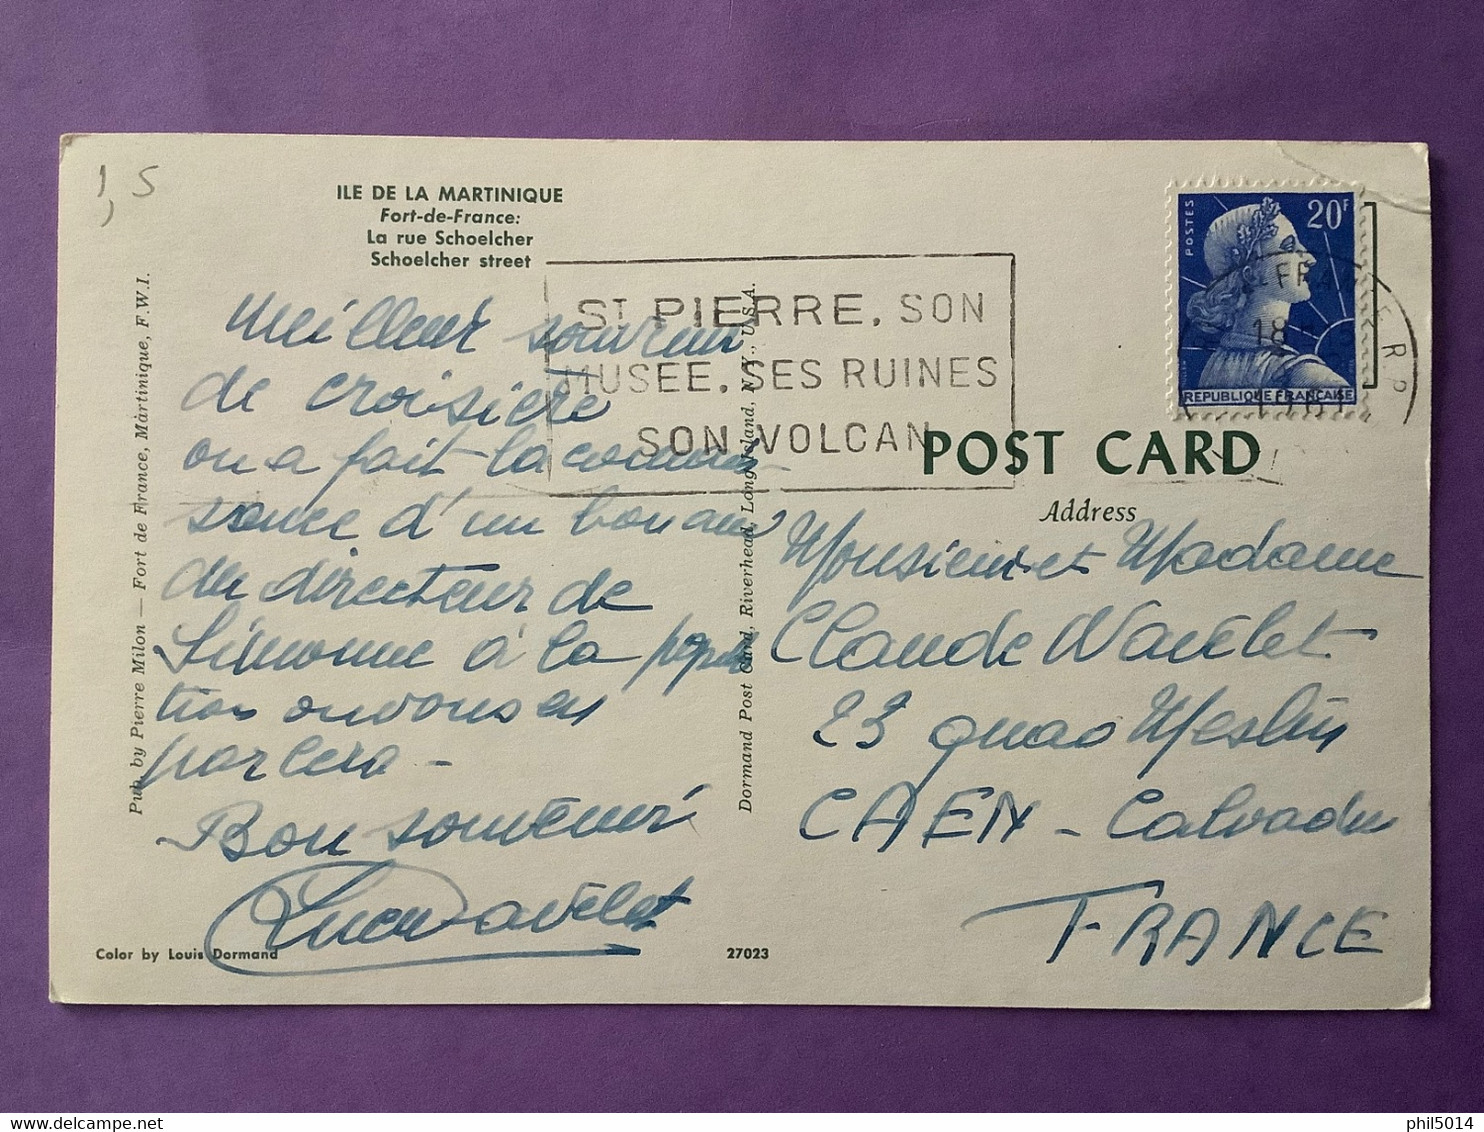 1,5
ILE DE LA MARTINIQUE
Fort-de-France:
La rue Schoelcher
Schoelcher street
Pub. by Pierre Milon — Fort de France, Martinique, F.W.I.
Meilleur souvenir
de croisière
on a fait la connais-
sance d'un bon ami
du directeur de
Simonne à la
on vous en
parlera -
Bon souvenir
Wavelet
Color by Louis Dormand
27023
Dormand Post Card, Riverhead, Long Island, N.Y., U.S.A.
ST PIERRE, SON
MUSEE, SES RUINES
SON VOLCAN
POSTES
20F
REPUBLIQUE FRANÇAISE
R.P
18
POST CARD
Address
Monsieur et Madame
Claude Wavelet
23 quao Meslin
CAEN - Calvados
FRANCE
phil5014